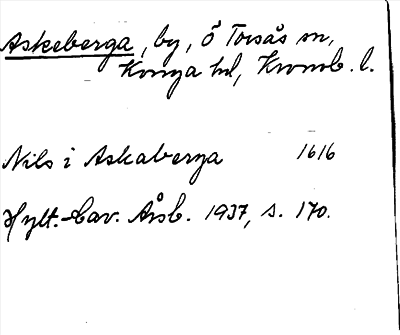 Askeberga, by, Ö Torsås sn,
Konga hd, Kronob. l.
Nils i Askaberga 1616
Hylt.-Cav. Årsb. 1937, s. 170.